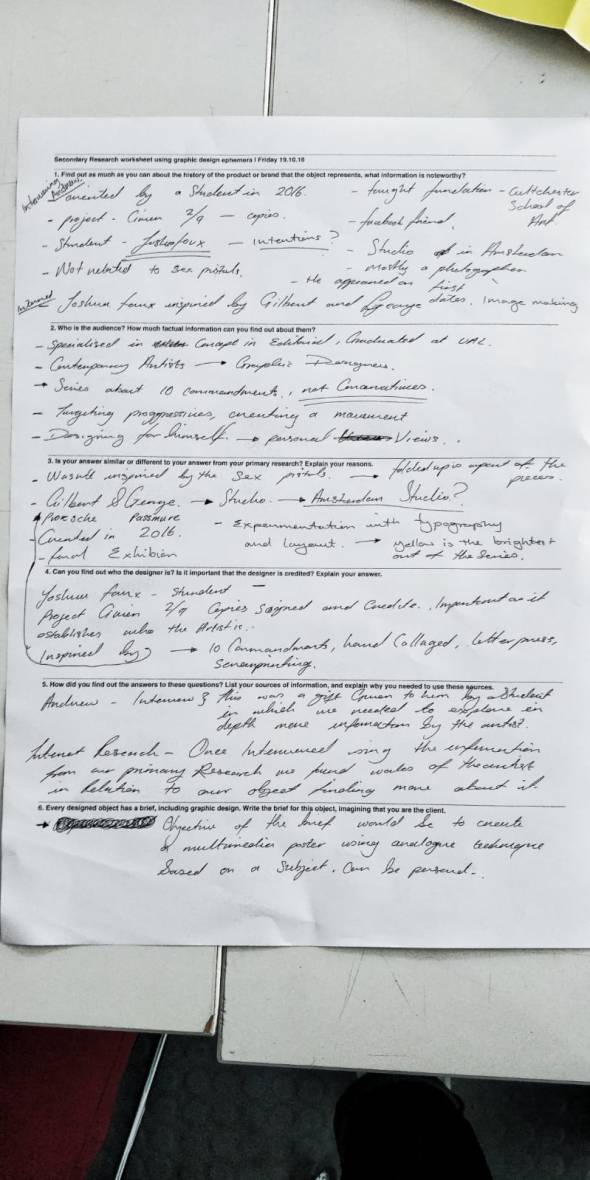 Secondary Research worksheet using graphic design ephemera I Friday 19.10.18
1. Find out as much as you can about the history of the product or brand that the object represents, what information is noteworthy?
Interviewing Andrew
created by a Student in 2016.
- project - Given 2/9 - copies.
- Student - Joshua foux - intentions?
- Not related to sex pistols.
- taught foundation - Cultchester School of Art
- facebook friend.
- Studio in Amsterdam
- Mostly a photographer
- He appeared on first dates. Image making
Joshua foux inspired by Gilbert and George
2. Who is the audience? How much factual information can you find out about them?
- Specialised in Concept in Editorial, Graduated at UAL.
- Contemporary Artists → Graphic Designers.
→ Series about 10 commandments, not Conservatives.
- Targeting progressives, creating a movement
- Designing for himself. → personal Views..
3. Is your answer similar or different to your answer from your primary research? Explain your reasons.
- Wasnt inspired by the Sex pistols. → folded up is apart of the pieces.
- Gilbert & George. → Studio. → Amsterdam Studio?
- Created in 2016.
- final Exhibion
- Experimentation with typography and layout. → yellow is the brightest out of the Series.
4. Can you find out who the designer is? Is it important that the designer is credited? Explain your answer.
Joshua foux - Student -
Project Given 2/9 Copies Signed and Credite.. Important as it
establishes who the Artist is.
(Inspired by) → 10 Commandments, hand Collaged, letterpress,
Screenprinting.
5. How did you find out the answers to these questions? List your sources of information, and explain why you needed to use these sources.
Andrew - Interview } this was a gift Given to him by a Student
in which we needed to explore in
depth more information by the artist.
Internet Research - Once Interviewed using the information
from our primary Research we found works of the artist
in Relation to our object finding more about it.
6. Every designed object has a brief, including graphic design. Write the brief for this object, imagining that you are the client.
→ Objective of the brief would be to create
a multimedia poster using analogue technique
Based on a Subject. Can be personal..